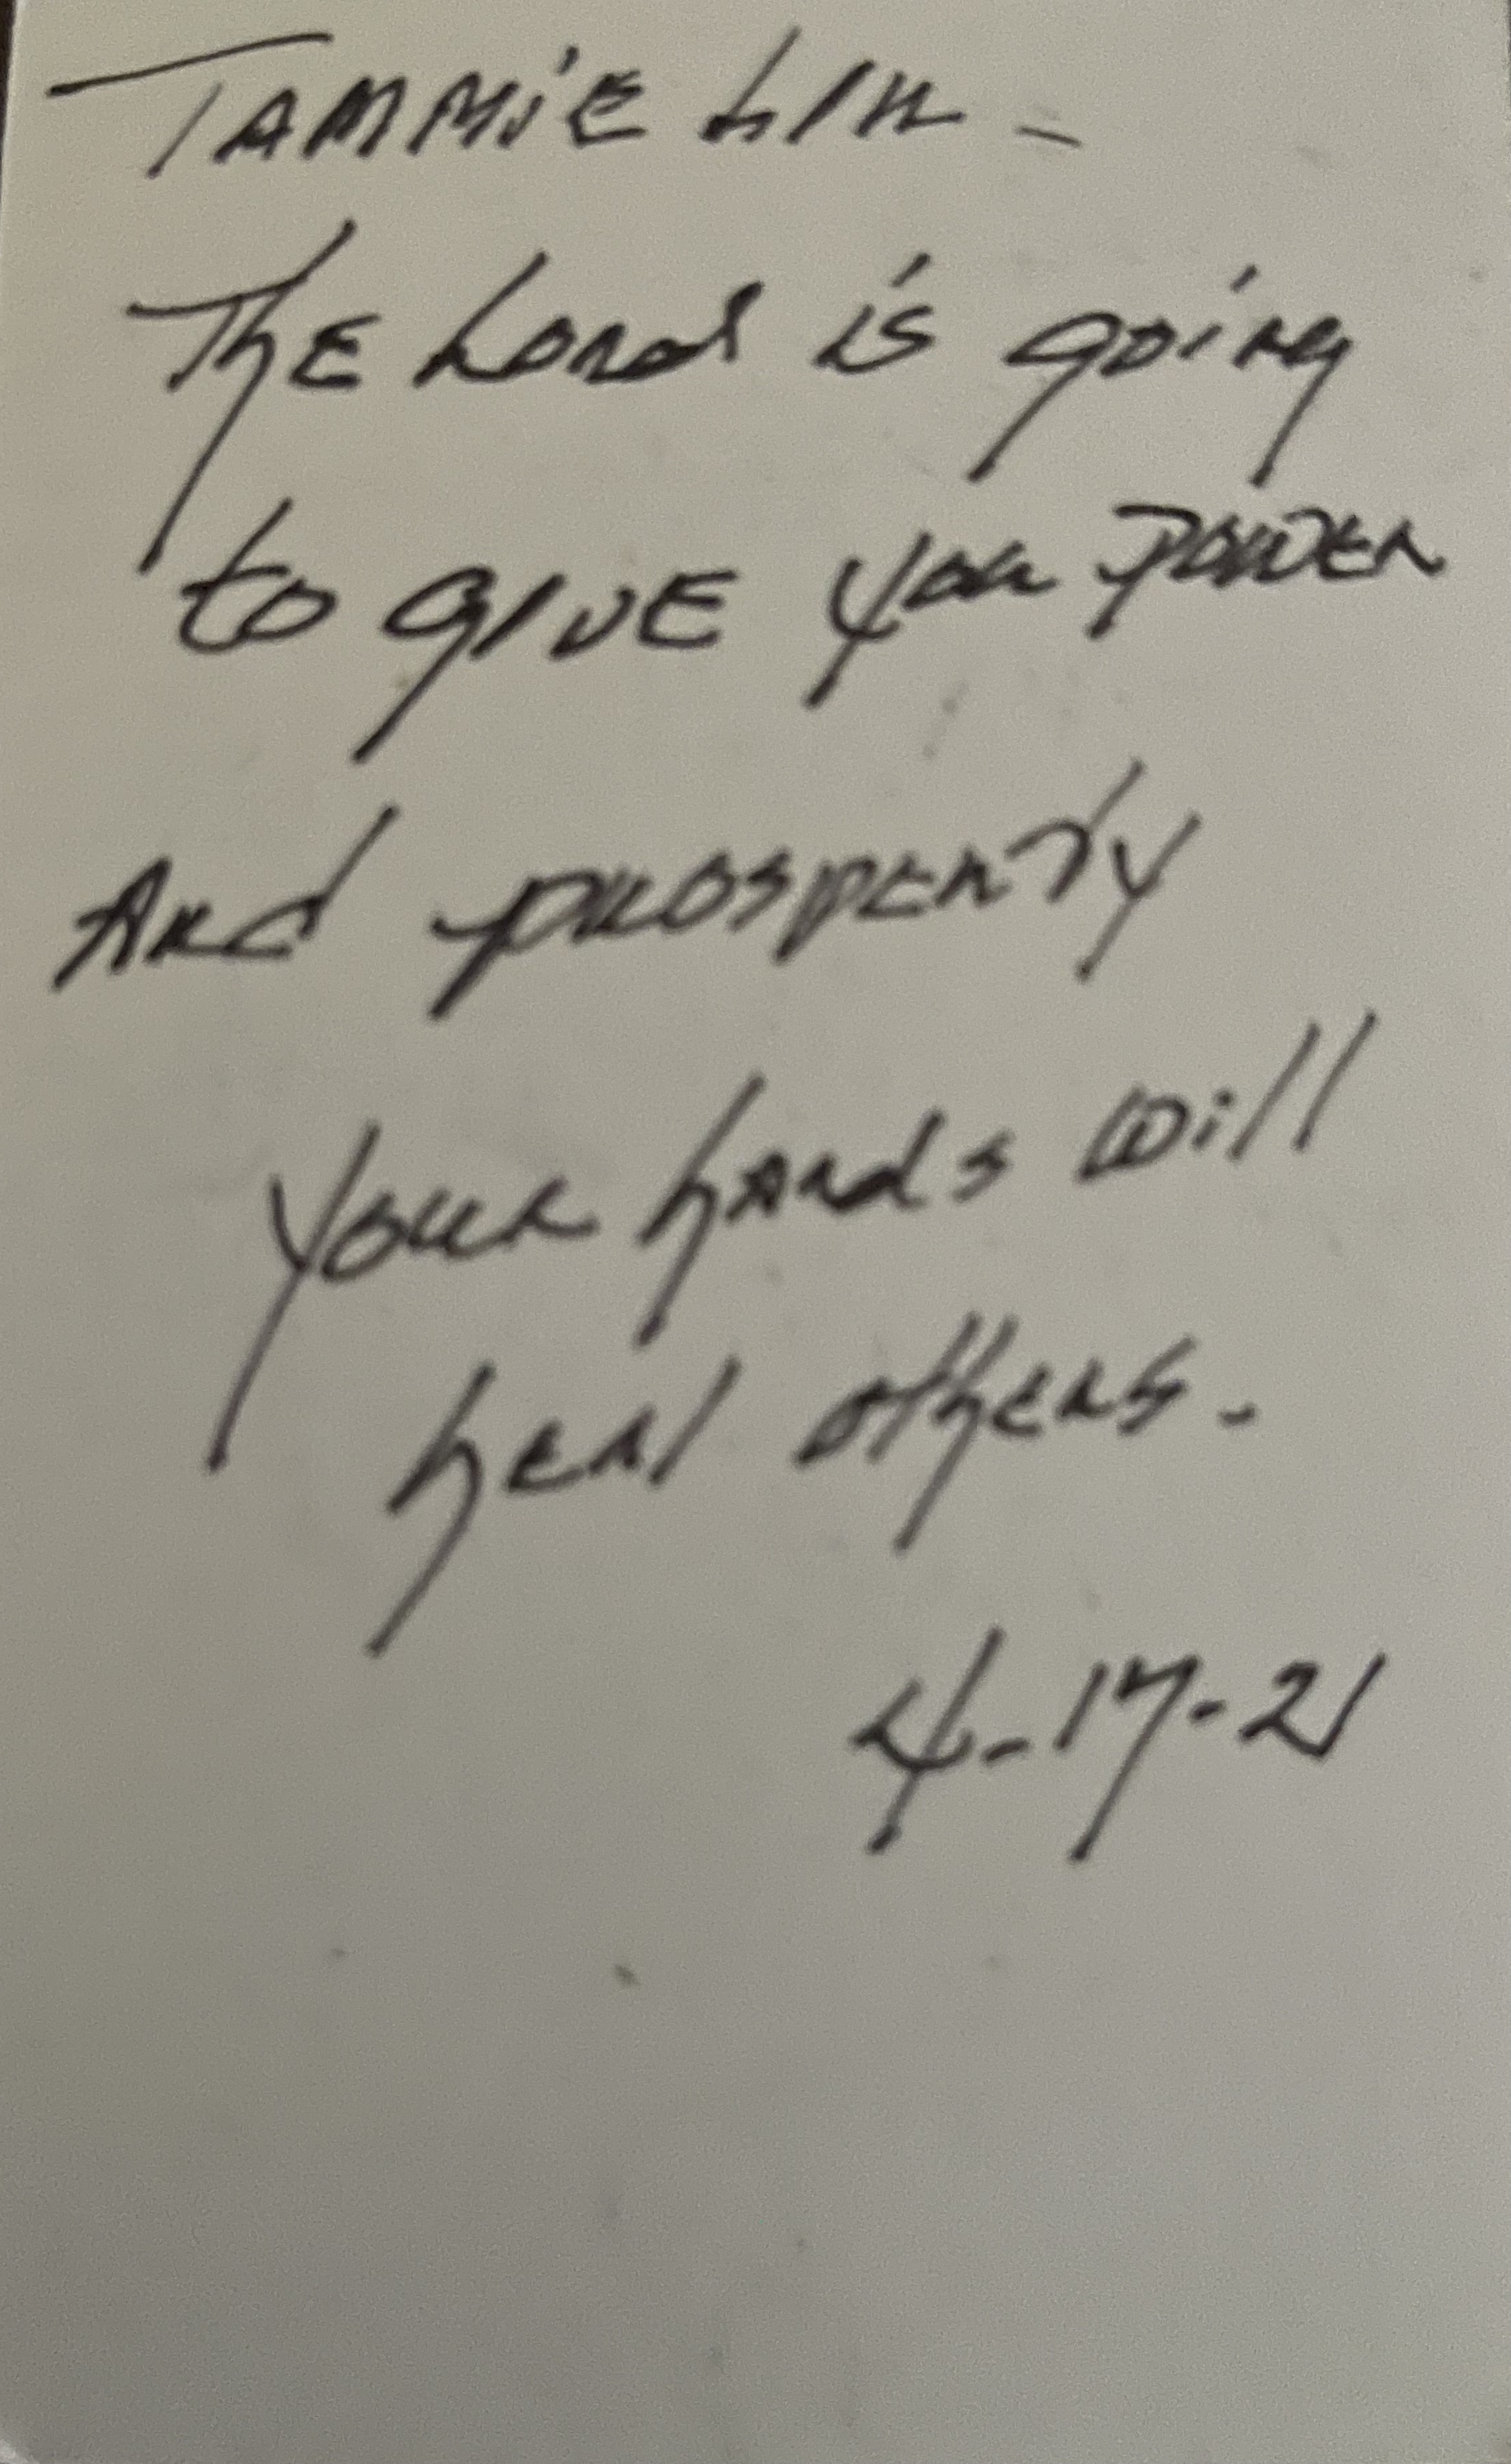 TAMMiE LIN -
ThE Lord is going
to giVE you power
And prosperity
your hands will
heal others.
4-17-21